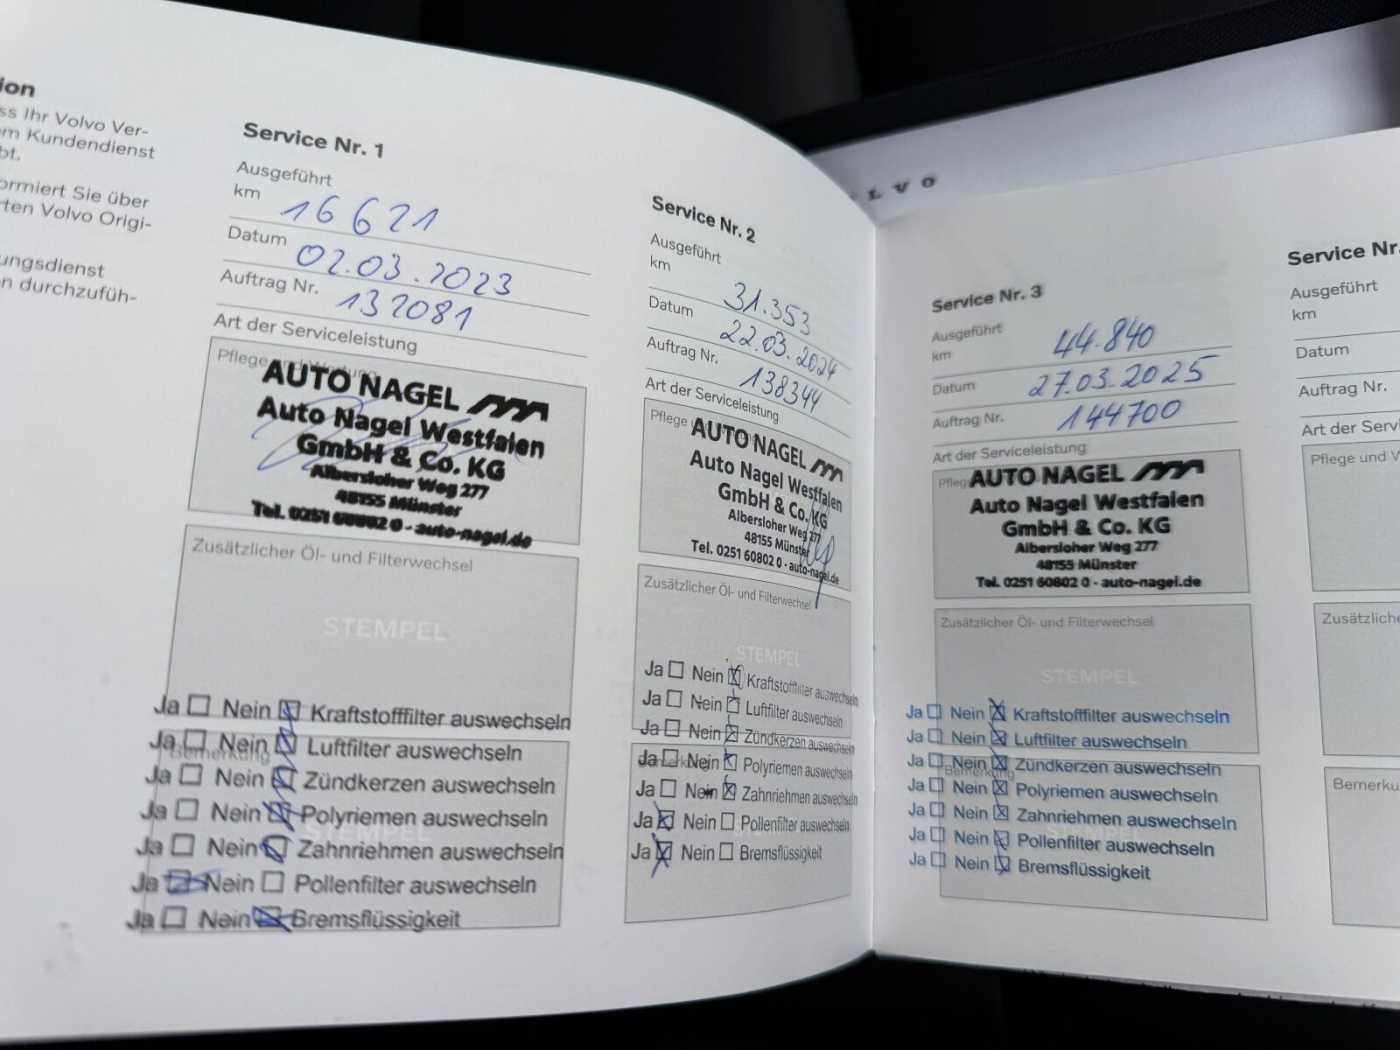 ion
ss Ihr Volvo Ver-
em Kundendienst
bt.
ormiert Sie über
rten Volvo Origi-
ungsdienst
n durchzufüh-
Service Nr. 1
Ausgeführt
km 16 621
Datum 02.03.2023
Auftrag Nr. 132081
Art der Serviceleistung
Pflege und Wartung
AUTO NAGEL
Auto Nagel Westfalen
GmbH & Co. KG
Albersloher Weg 277
48155 Münster
Tel. 0251 60802 0 - auto-nagel.de
Zusätzlicher Öl- und Filterwechsel
STEMPEL
Ja Nein Kraftstofffilter auswechseln
Ja Nein Luftfilter auswechseln
Bemerkung
Ja Nein Zündkerzen auswechseln
Ja Nein Polyriemen auswechseln
STEMPEL
Ja Nein Zahnriehmen auswechseln
Ja Nein Pollenfilter auswechseln
Ja Nein Bremsflüssigkeit
Service Nr. 2
Ausgeführt
km 31.353
Datum 22.03.2024
Auftrag Nr. 138344
Art der Serviceleistung
Pflege
AUTO NAGEL
Auto Nagel Westfalen
GmbH & Co. KG
Albersloher Weg 277
48155 Münster
Tel. 0251 60802 0 - auto-nagel.de
Zusätzlicher Öl- und Filterwechsel
STEMPEL
Ja Nein Kraftstofffilter auswechseln
Ja Nein Luftfilter auswechseln
Ja Nein Zündkerzen auswechseln
Bemerkung
Ja Nein Polyriemen auswechseln
Ja Nein Zahnriehmen auswechseln
Ja Nein Pollenfilter auswechseln
Ja Nein Bremsflüssigkeit
LVO
Service Nr. 3
Ausgeführt
km 44.840
Datum 27.03.2025
Auftrag Nr. 144700
Art der Serviceleistung
Pfleg
AUTO NAGEL
Auto Nagel Westfalen
GmbH & Co. KG
Albersloher Weg 277
48155 Münster
Tel. 0251 60802 0 - auto-nagel.de
Zusätzlicher Öl- und Filterwechsel
STEMPEL
Ja Nein Kraftstofffilter auswechseln
Ja Nein Luftfilter auswechseln
Ja Nein Zündkerzen auswechseln
Bemerkung
Ja Nein Polyriemen auswechseln
Ja Nein Zahnriehmen auswechseln
Ja Nein Pollenfilter auswechseln
Ja Nein Bremsflüssigkeit
Service Nr.
Ausgeführt
km
Datum
Auftrag Nr.
Art der Servi
Pflege und W
Zusätzliche
Bemerku